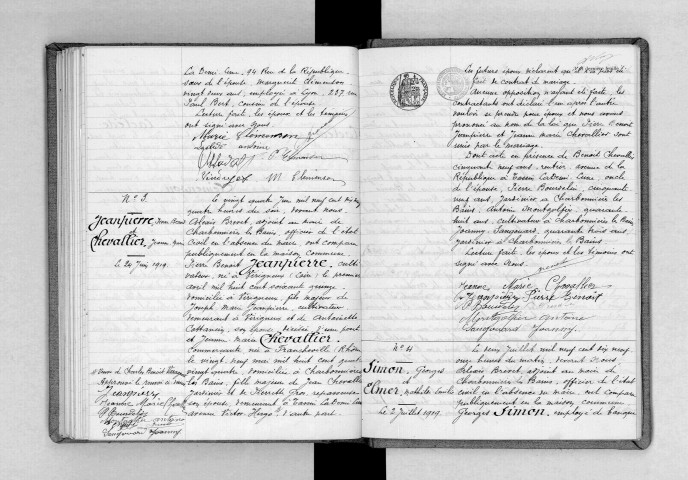 La Demi-Lune, 94 Rue de la République
sœur de l'épouse Marguerite Clémenson
vingt six ans, employée à Lyon, 237 rue
Paul Bert, cousine de l'épouse
Lecture faite, les époux et les témoins
ont signé avec Nous
Marie Clemenson
M Clemenson
N° 3.
Jeanpierre, Pierre Benoit
et
Chevallier, Jeanne Marie
le 24 Juin 1919.
Le vingt quatre Juin mil neuf cent dix neuf
quatre heures du soir, devant nous
Brovet, adjoint au maire de
Charbonnière les Bains, officier de l'état
civil en l'absence du maire, ont comparu
publiquement en la maison commune
Pierre Benoit Jeanpierre, culti-
vateur, né à Vérigneux (Loire) le premier
avril mil huit cent soixante quinze
domicilié à Vérigneux, fils majeur de
Joseph Marie Jeanpierre, cultivateur
demeurant à Vérigneux et de Antoinette
son épouse, décédée, d'une part
et Jeanne Marie Chevallier.
née à Francheville (Rhône)
le vingt neuf mai mil huit cent quatre
vingt quatre, domiciliée à Charbonnière
les Bains, fille majeure de Jean Chevallier
jardinier et de Pierrette Gros,
son épouse, demeurant à Tassin la Demi Lune
avenue Victor Hugo, d'autre part.
Jeanpierre
Jeanne Marie Chevallier
P Bourdelin
Les futurs époux déclarent qu'il
fait de contrat de mariage.
Aucune opposition n'ayant été faite, les
contractants ont déclaré l'un après l'autre
vouloir se prendre pour époux et nous avons
prononcé au nom de la loi que Pierre Benoit
Jeanpierre et Jeanne Marie Chevallier sont
unis par le mariage.
Dont acte en présence de Benoit Chevallier
cinquante neuf ans, rentier, avenue de la
République à Tassin la Demi Lune, oncle
de l'épouse, Pierre Bourdelin, cinquante
neuf ans, jardinier à Charbonnière les
Bains, Antoine Montagnier, quarante
huit ans, cultivateur à Charbonnière les Bains
Joanny Sangouard, quarante trois ans,
jardinier à Charbonnière les Bains
Lecture faite, les époux et les témoins ont
signé avec Nous.
Jeanne Marie Chevallier
Jeanpierre Pierre Benoit
Antoine
Sangouard Joanny
N° 4
Simon, Georges
et
Elmer, Mathilde
le 2 Juillet 1919.
Le deux Juillet, mil neuf cent dix neuf
onze heures du matin, devant Nous
Brovet, adjoint au maire de
Charbonnière les Bains, officier de l'état
civil en l'absence du maire, ont comparu
publiquement en la maison commune
Georges Simon, employé de banque